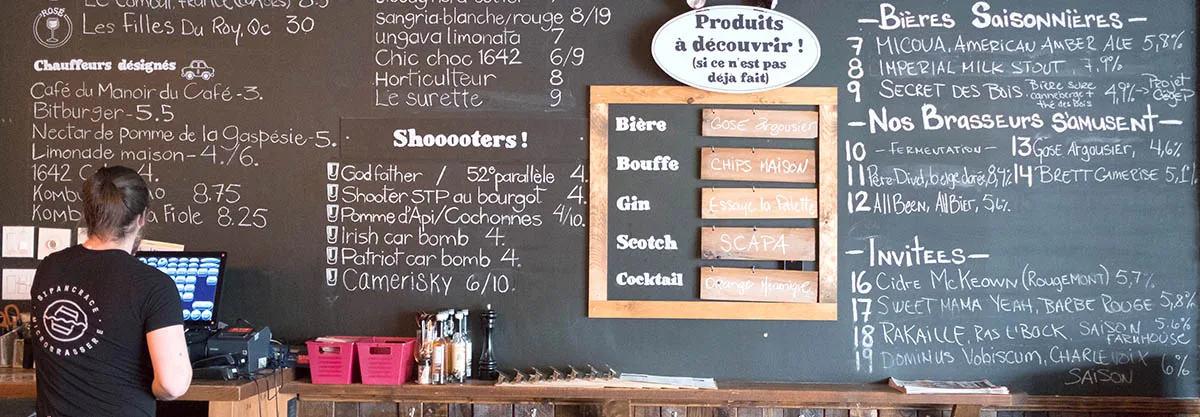 Rosé
Les Filles Du Roy, Qc 30
Chauffeurs désignés
Café du Manoir du Café - 3.
Bitburger - 5.5
Nectar de pomme de la gaspésie - 5.
Limonade maison - 4./6.
1642 4.
Kombu 8.75
Kombu La Fiole 8.25
sangria blanche/rouge 8/19
ungava limonata 7
Chic choc 1642 6/9
Horticulteur 8
Le surette 9
Shooooters !
Godfather / 52e parallèle 4.
Shooter STP au bourgot 4.
Pomme d'Api/Cochonnes 4/10.
Irish car bomb 4.
Patriot car bomb 4.
Camerisky 6/10.
Produits
à découvrir !
(si ce n'est pas
déjà fait)
Bière Gose Argousier
Bouffe CHIPS MAISON
Gin Essaye la Palette
Scotch SCAPA
Cocktail
- Bières Saisonnières -
7 MICOUA, AMERICAN AMBER ALE 5,8%
8 IMPERIAL MILK STOUT, 7,9%
9 SECRET DES BOIS Bière sure canneberge + thé des Bois 4,9% → Projet
- Nos Brasseurs s'amusent -
10 - FERMENTATION -
11
12 All Been, All Bier, 5,6%
13 Gose Argousier, 4,6%
14 BRETT CAMERISE 5,1%
- Invitées -
16 Cidre McKeown (Rougemont) 5,7%
17 SWEET MAMA YEAH, BARBE ROUGE 5,8%
18 RAKAILLE, RAS L'BOCK SAISON FARMHOUSE 5.6%
19 DOMINUS VOBISCUM, CHARLEVOIX SAISON 6%
BIPANCRACE
MICROBRASSERIE